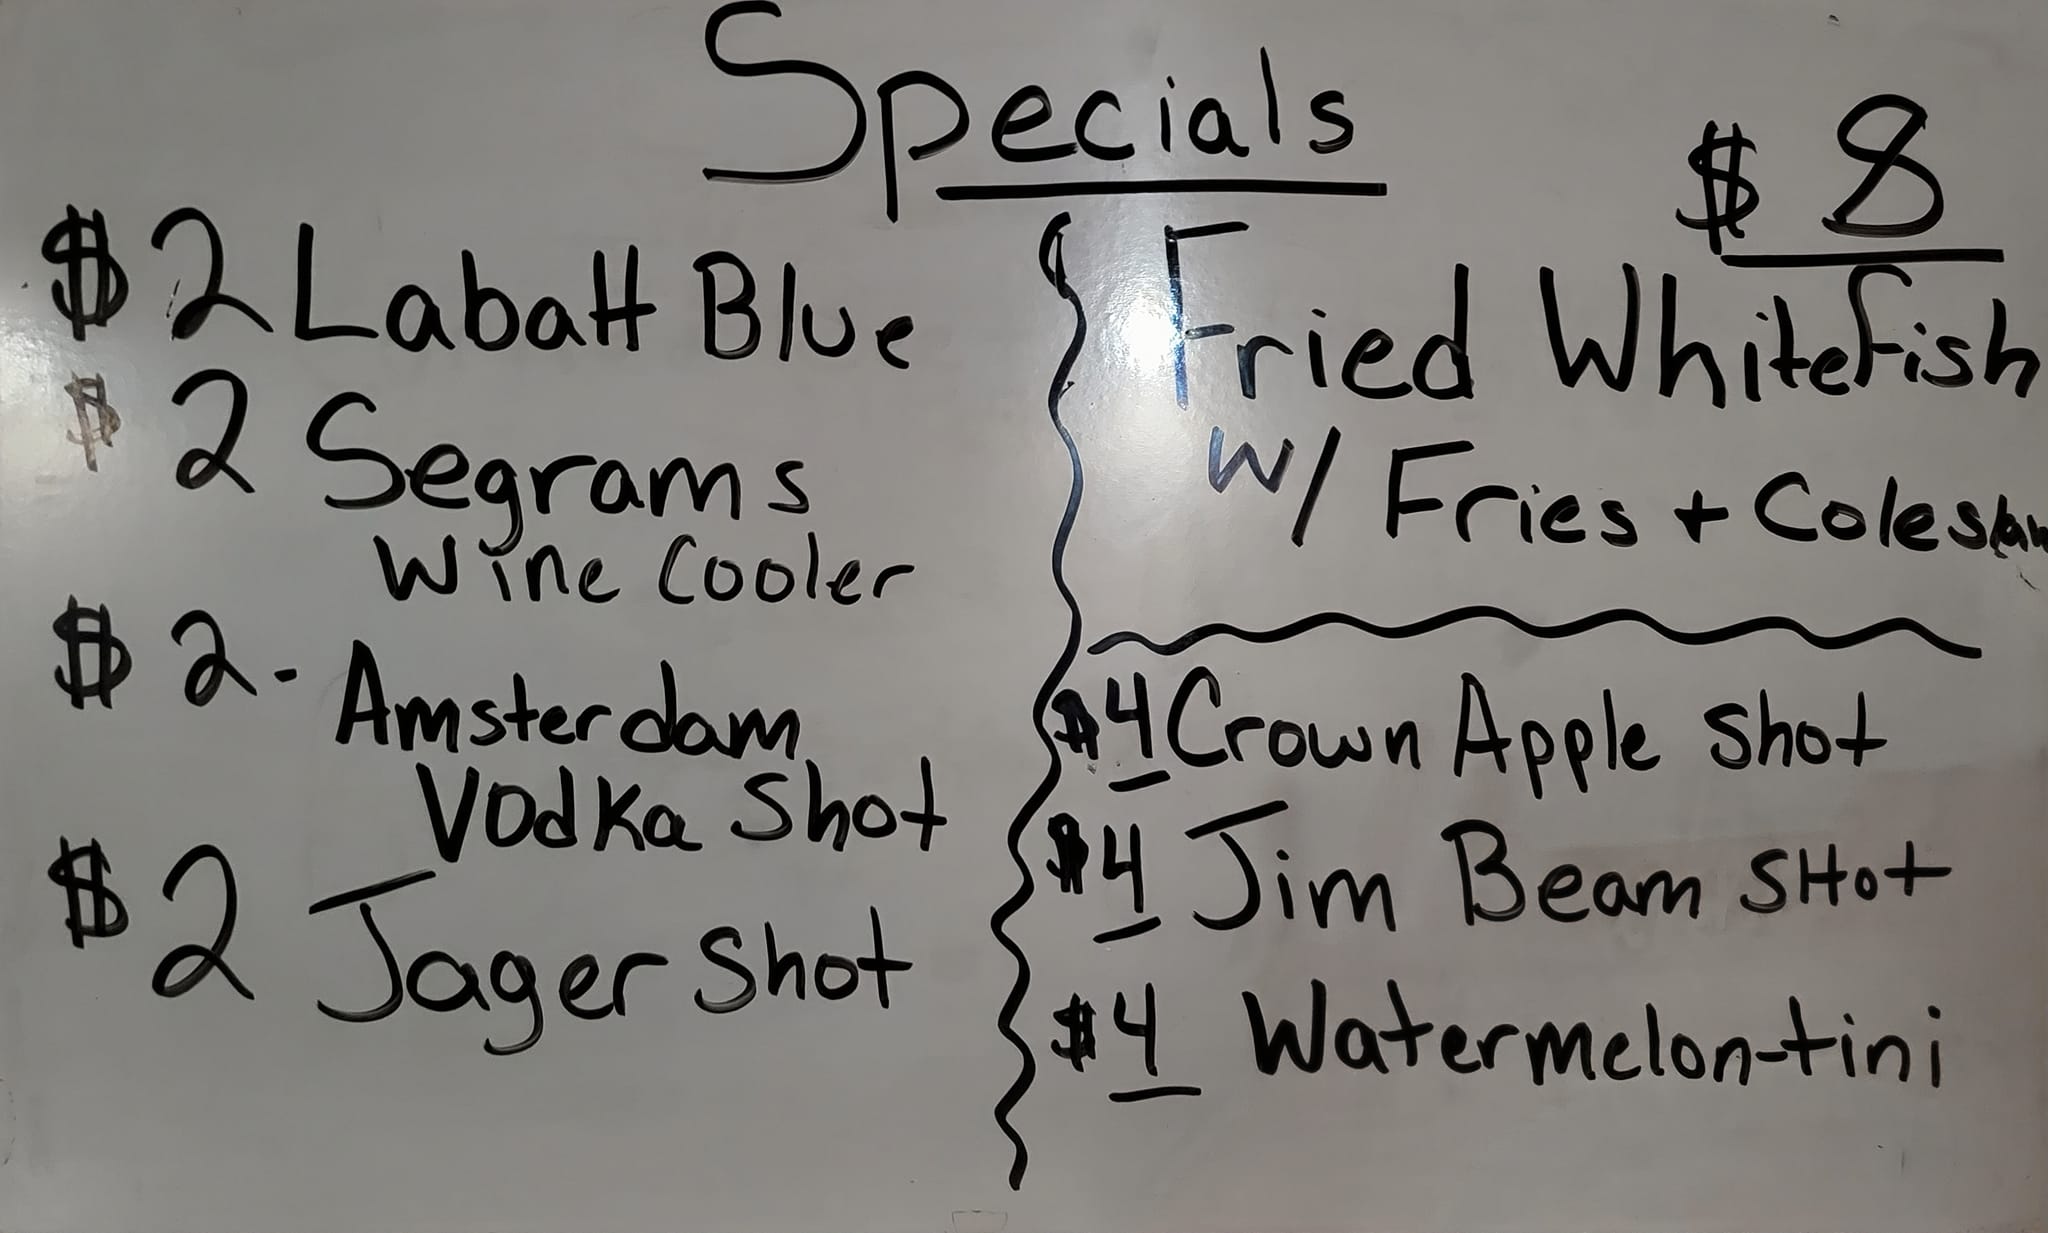 Specials
$2 Labatt Blue
$2 Segrams
Wine Cooler
$2- Amsterdam
Vodka Shot
$2 Jager Shot
$8
Fried Whitefish
w/ Fries + Coleslaw
$4 Crown Apple Shot
$4 Jim Beam SHot
$4 Watermelon-tini